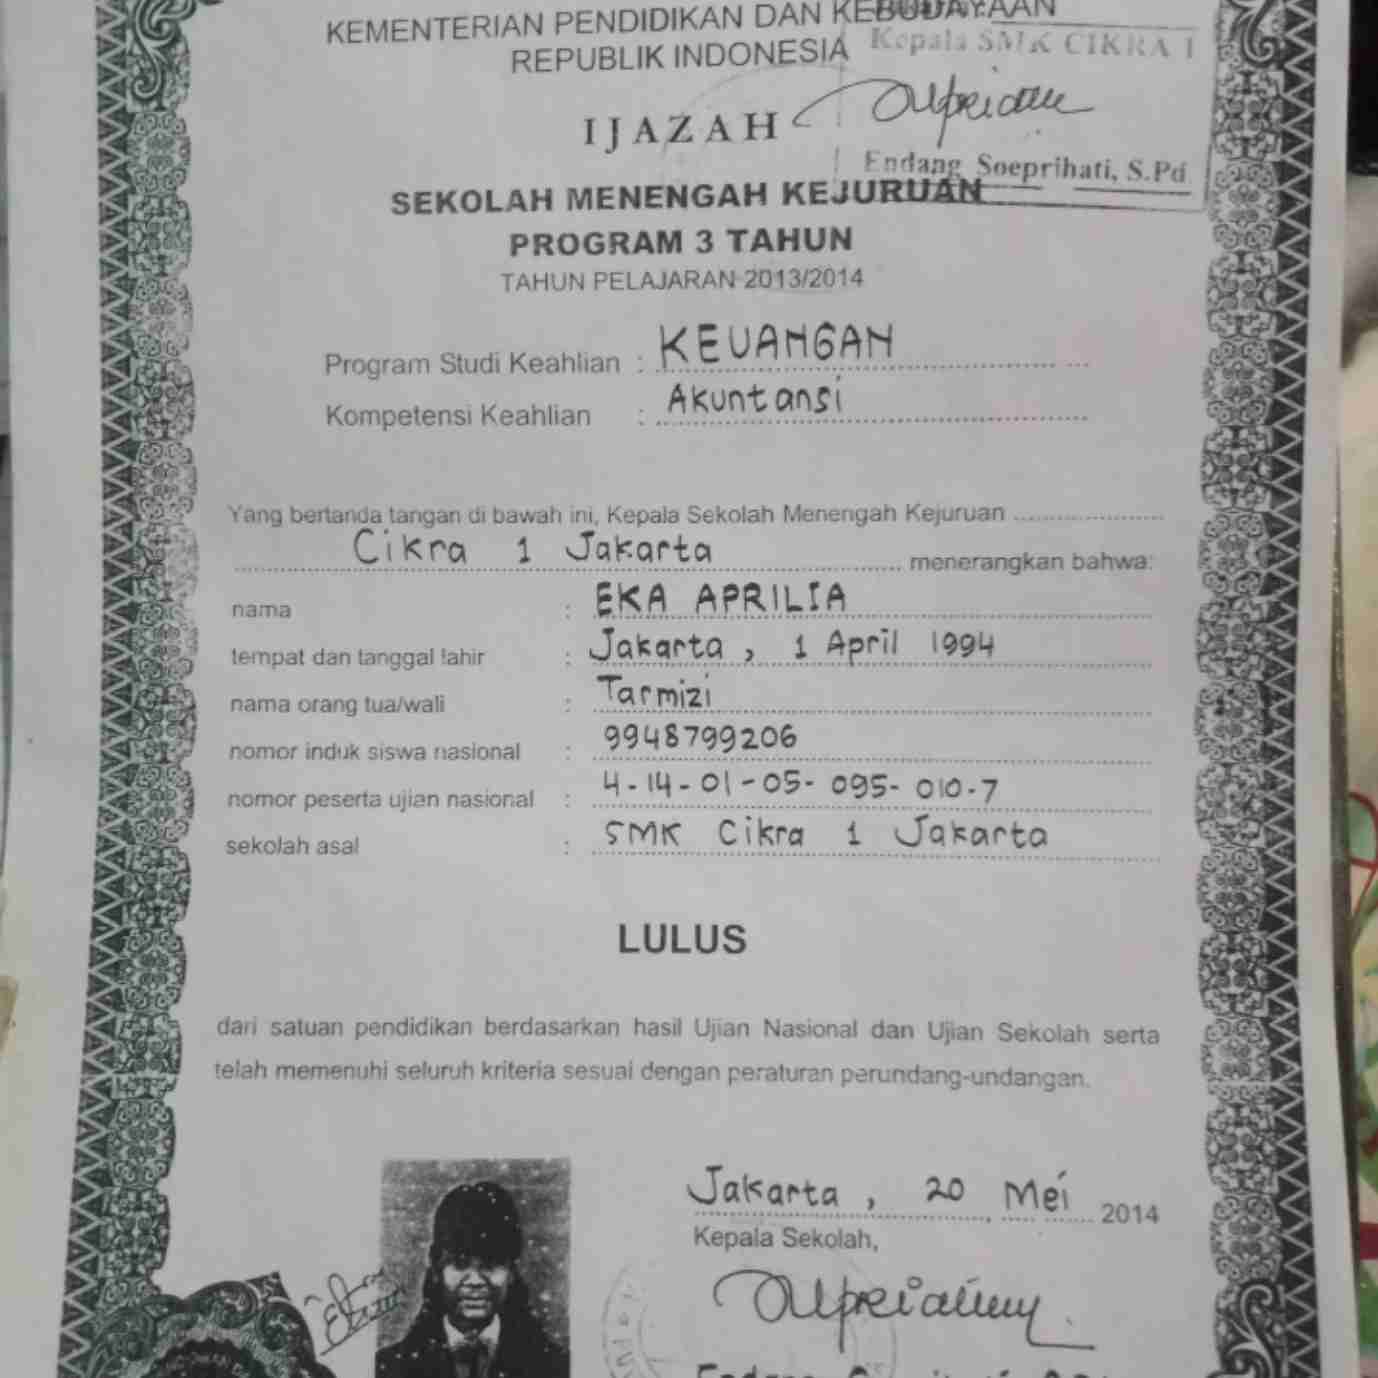 KEMENTERIAN PENDIDIKAN DAN KEBUDAYAAN
REPUBLIK INDONESIA
Kepala SMK CIKRA 1
IJAZAH
Endang Soeprihati, S.Pd
SEKOLAH MENENGAH KEJURUAN
PROGRAM 3 TAHUN
TAHUN PELAJARAN 2013/2014
Program Studi Keahlian : KEUANGAN
Kompetensi Keahlian : Akuntansi
Yang bertanda tangan di bawah ini, Kepala Sekolah Menengah Kejuruan
Cikra 1 Jakarta menerangkan bahwa:
nama : EKA APRILIA
tempat dan tanggal lahir : Jakarta, 1 April 1994
nama orang tua/wali : Tarmizi
nomor induk siswa nasional : 9948799206
nomor peserta ujian nasional : 4-14-01-05-095-010-7
sekolah asal : SMK Cikra 1 Jakarta
LULUS
dari satuan pendidikan berdasarkan hasil Ujian Nasional dan Ujian Sekolah serta
telah memenuhi seluruh kriteria sesuai dengan peraturan perundang-undangan.
Jakarta, 20 Mei 2014
Kepala Sekolah,